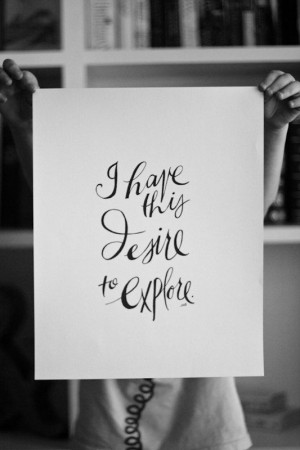 I have
this
desire
to explore.